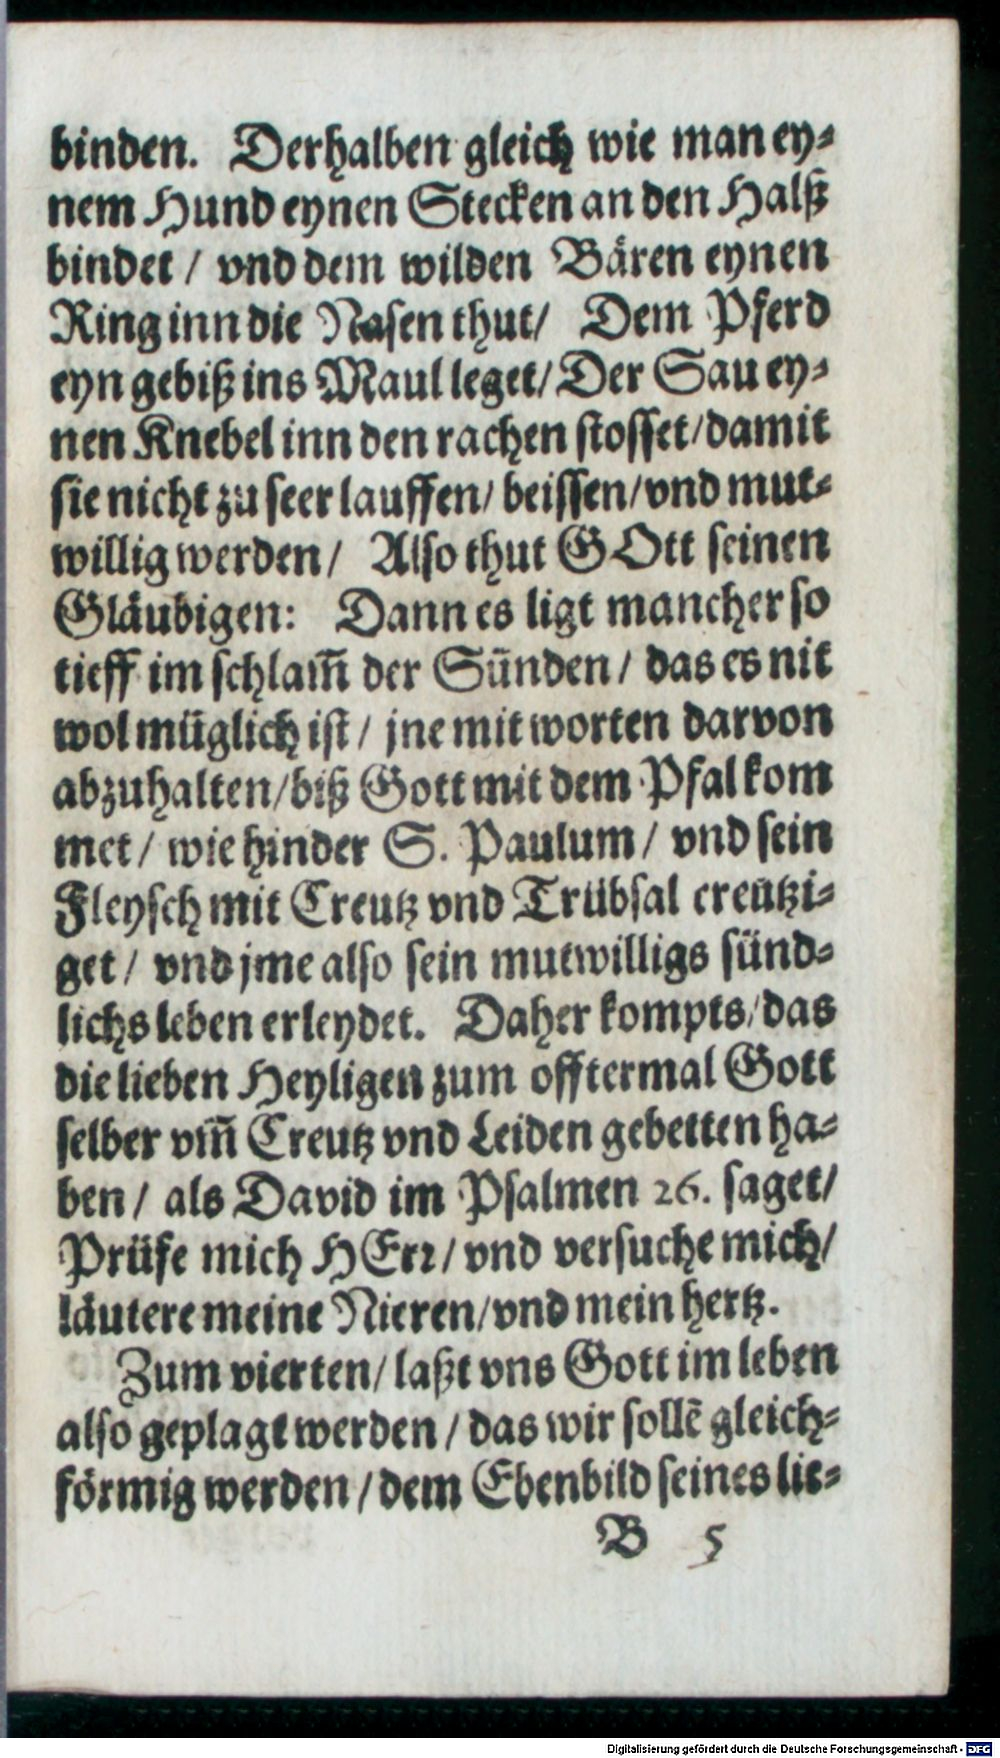 binden. Derhalben gleich wie man ey-
nem Hund eynen Stecken an den Halß
bindet / vnd dem wilden Bären eynen
Ring inn die Nasen thut / Dem Pferd
eyn gebiß ins Maul leget / Der Sau ey-
nen Knebel inn den rachen stosset / damit
sie nicht zu seer lauffen / beissen / vnd mut-
willig werden / Also thut GOtt seinen
Gläubigen: Dann es ligt mancher so
tieff im schlam̃ der Sünden / das es nit
wol müglich ist / jne mit worten darvon
abzuhalten / biß Gott mit dem Pfal kom
met / wie hinder S. Paulum / vnd sein
Fleysch mit Creutz vnd Trübsal creützi-
get / vnd jme also sein mutwilligs sünd-
lichs leben erleydet. Daher kompts / das
die lieben Heyligen zum offtermal Gott
selber vm̃ Creutz vnd Leiden gebetten ha-
ben / als David im Psalmen 26. saget /
Prüfe mich HErꝛ / vnd versuche mich /
läutere meine Nieren / vnd mein hertz.
Zum vierten / laßt vns Gott im leben
also geplagt werden / das wir sollẽ gleich-
förmig werden / dem Ebenbild seines lie-
B 5
Digitalisierung gefördert durch die Deutsche Forschungsgemeinschaft - DFG